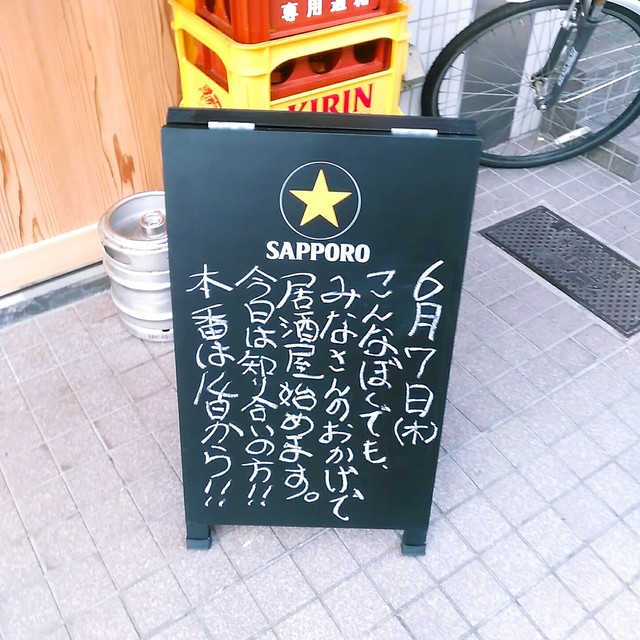 専用通箱
KIRIN
SAPPORO
6月7日(木)
こんなぼくでも、
みなさんのおかげで
居酒屋始めます。
今日は知り合いの方!!
本番は 日から!!